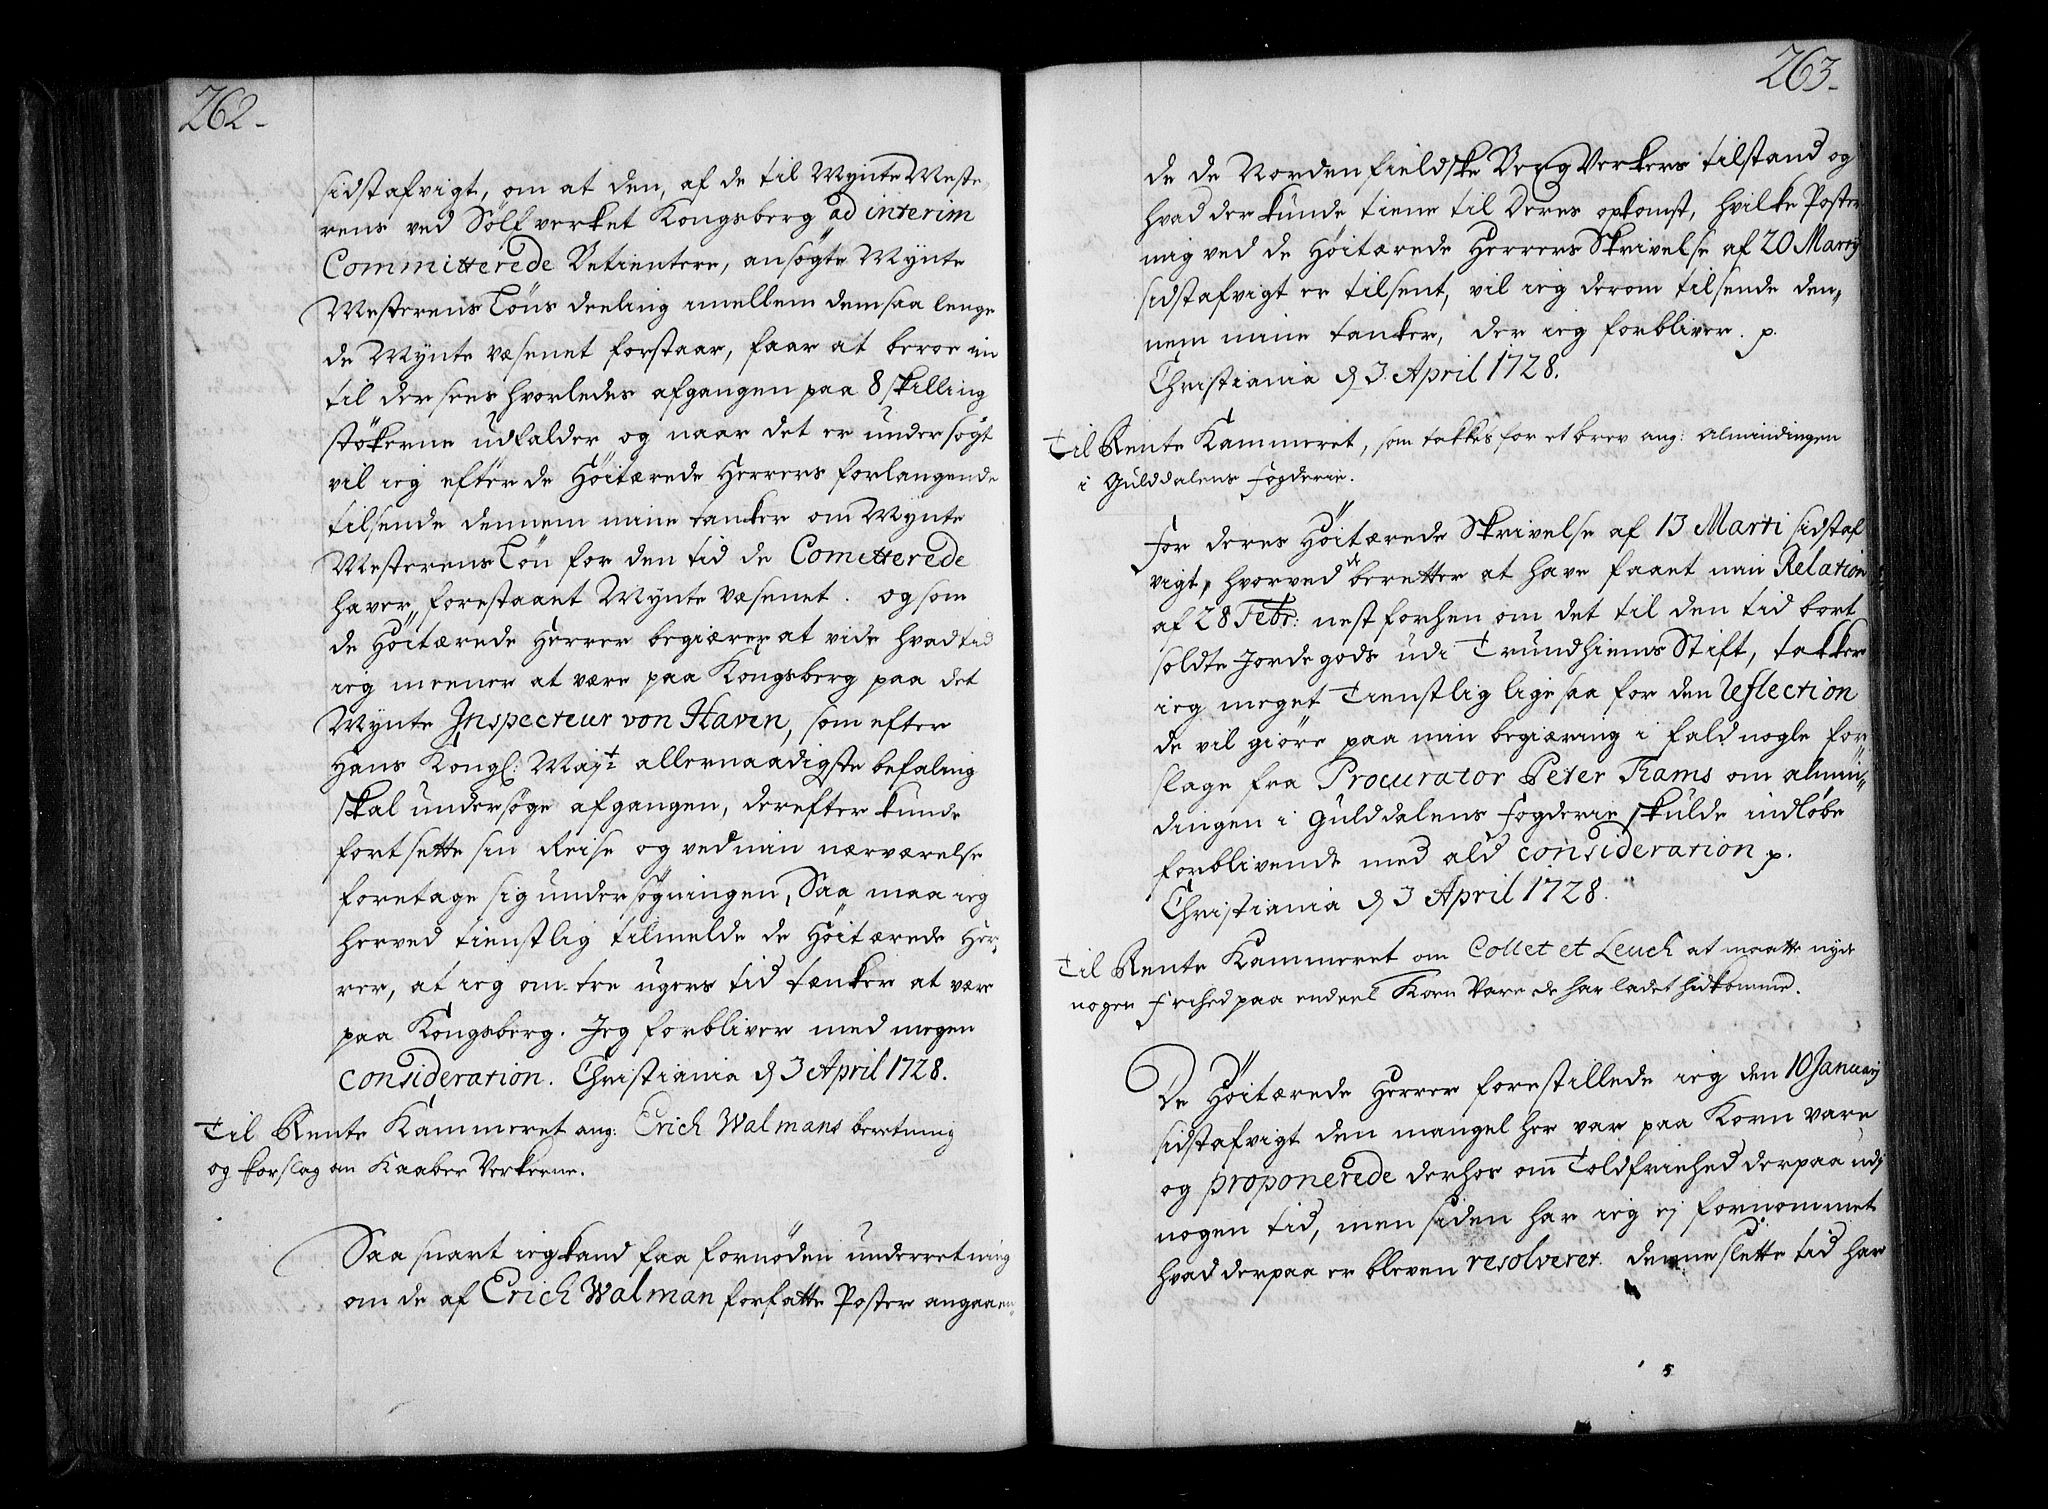 262.
sidstafvigt, om at den, af de til Mynte Meste-
rens ved Sølfverket Kongsberg ad interim
Committerede Betientere, ansøgte Mynte
Mesterens Løns deeling imellem dem saa lenge
de Mynte væsenet forstaar, faar at beroe in
til der sees hvorledes afgangen paa 8 skilling
støkerne udfalder og naar det er undersøgt
vil ieg efter de Høitærede Herrers forlangende
tilsende dennem mine tanker om Mynte
Mesterens Løn for den tid de Cometterede
haver forestaaet Mynte væsenet. og som
de Høitærede Herrer begiærer at vide hvad tid
ieg meener at være paa Kongsberg paa det
Mynte Inspecteur von Haven, som efter
Hans Kongl: Mayt allernaadigste befaling
skal undersøge afgangen, derefter kunde
fortsette sin Reise og ved min nærværelse
foretage sig undersøgningen, Saa maa ieg
herved tienstlig tilmelde de Høitærede Her-
rer, at ieg om tre ugers tid tænker at være
paa Kongsberg. Jeg forbliver med megen
consideration. Christiania d 3 April 1728.
Til Rente Kammeret ang: Erich Walmans beretning
og forslag om Kaaber Verkerne.
Saa snart ieg kand faa fornøden underretning
om de af Erich Walman forfatte Poster angaaen-
263.
de de Nordenfieldske Berg Verkers tilstand og
hvad der kunde tiene til deres opkomst, hvilke Poster
mig ved de Høitærede Herrers Skrivelse af 20 Martij
sidstafvigt er tilsent, vil ieg derom tilsende den-
nem mine tanker, der ieg forbliver. p.
Christiania d 3. April 1728.
Til Rente Kammeret, som takkes for et brev ang: Almindingen
i Gulddalens Fogderie.
For deres Høitærede Skrivelse af 13 Marti sidstaf
vigt, hvorved de beretter at have faaet min Relation
af 28 Febr: nest forhen om det til den tid bort
soldte Jordegods udi Trundhiems Stift, takker
ieg meget tienstlig lige saa for den Reflection
de vil giøre paa min begiæring i fald nogle for
slage fra Procurator Peter Trams om almin-
dingen i Gulddalens Fogderie skulde indløbe
forblivende med ald consideration p.
Christiania d 3 April 1728.
Til Rente Kammeret om Collet et Leuch at maatte nyde
nogen Frihed paa endeel Korn Vare de har ladet hidkomme.
De Høitærede Herrer forestillede ieg den 10 Januarij
sidstafvigt den mangel her var paa Korn vare
og proponerede derhos om Toldfriehed derpaa udj
nogen tid, men siden har ieg ej fornommet
hvad derpaa er bleven resolveret. denne slette tid har